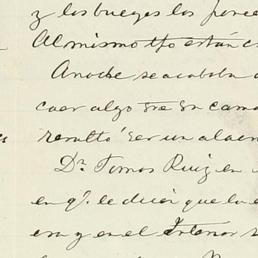 y los bueyes los ponee
Al mismo tpo están c
Anoche se acababa d
caer algo sre su cama
resultó ser un alacra
Dn. Tomas Ruiz en
en q.e le dicen que lo e
era y en el Interior